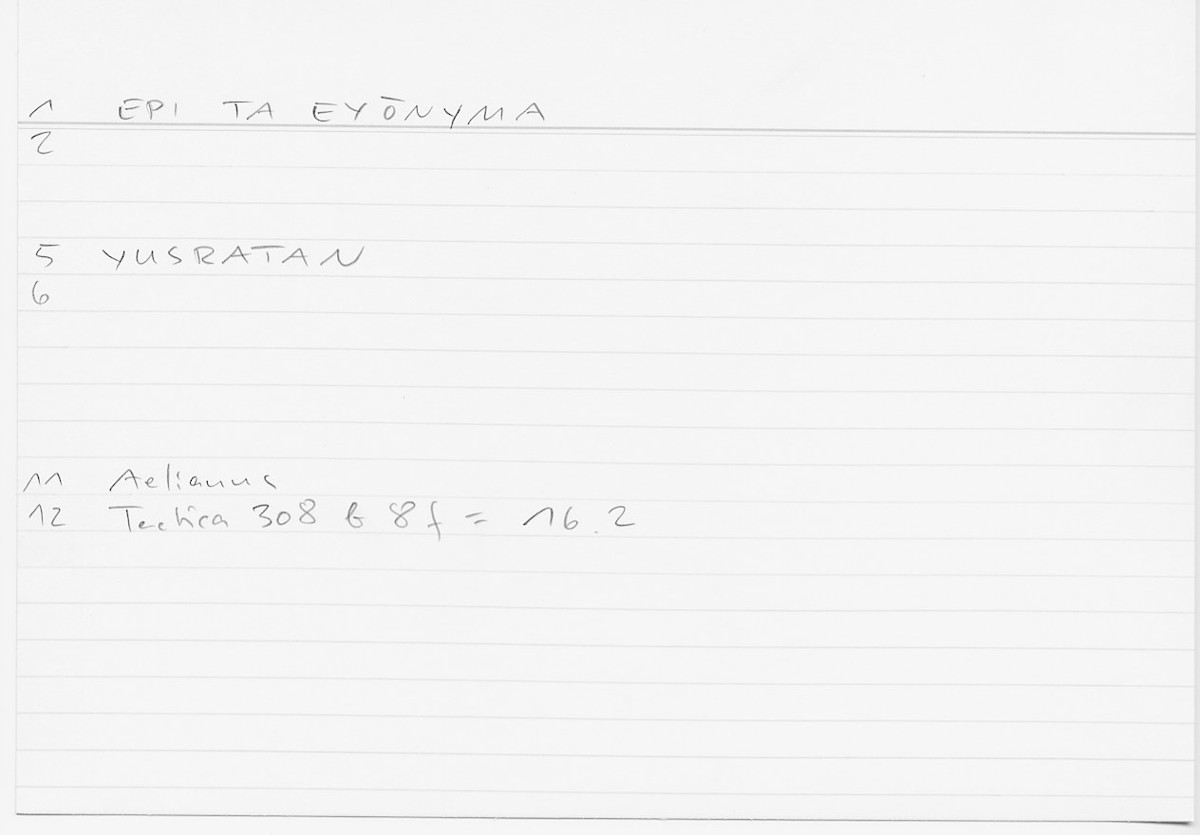 1 EPI TA EYŌNYMA
2
5 YUSRATAN
6
11 Aelianus
12 Tactica 308 b 8f = 16.2